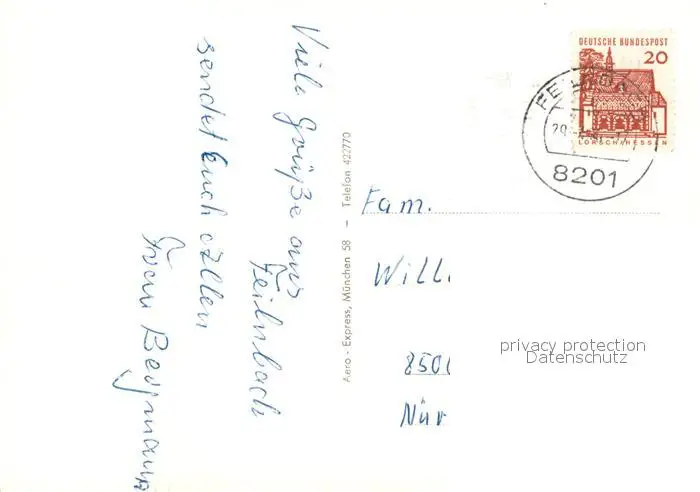 Viele Grüße aus
Feilnbach
sendet Euch allen
Frau Bergmann
Aero - Express, München 58 - Telefon 422770
DEUTSCHE BUNDESPOST
20
LORSCH/HESSEN
8201
Fam.
Will.
850
Nür
privacy protection
Datenschutz